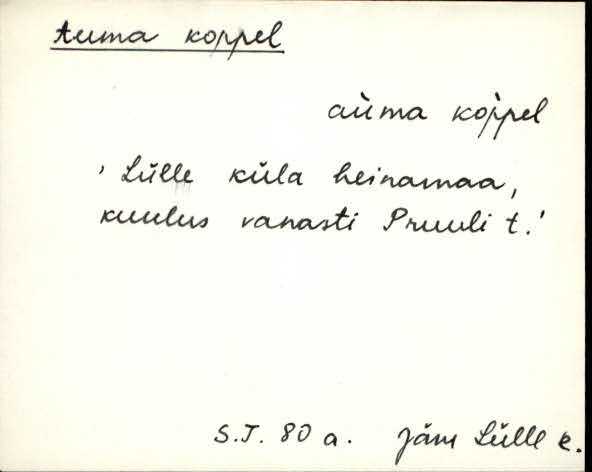 Auma koppel
aùma kop̀pel
' Lülle küla heinamaa,
kuulus vanasti Pruuli t.'
S.T. 80 a. Jäm Lülle k.